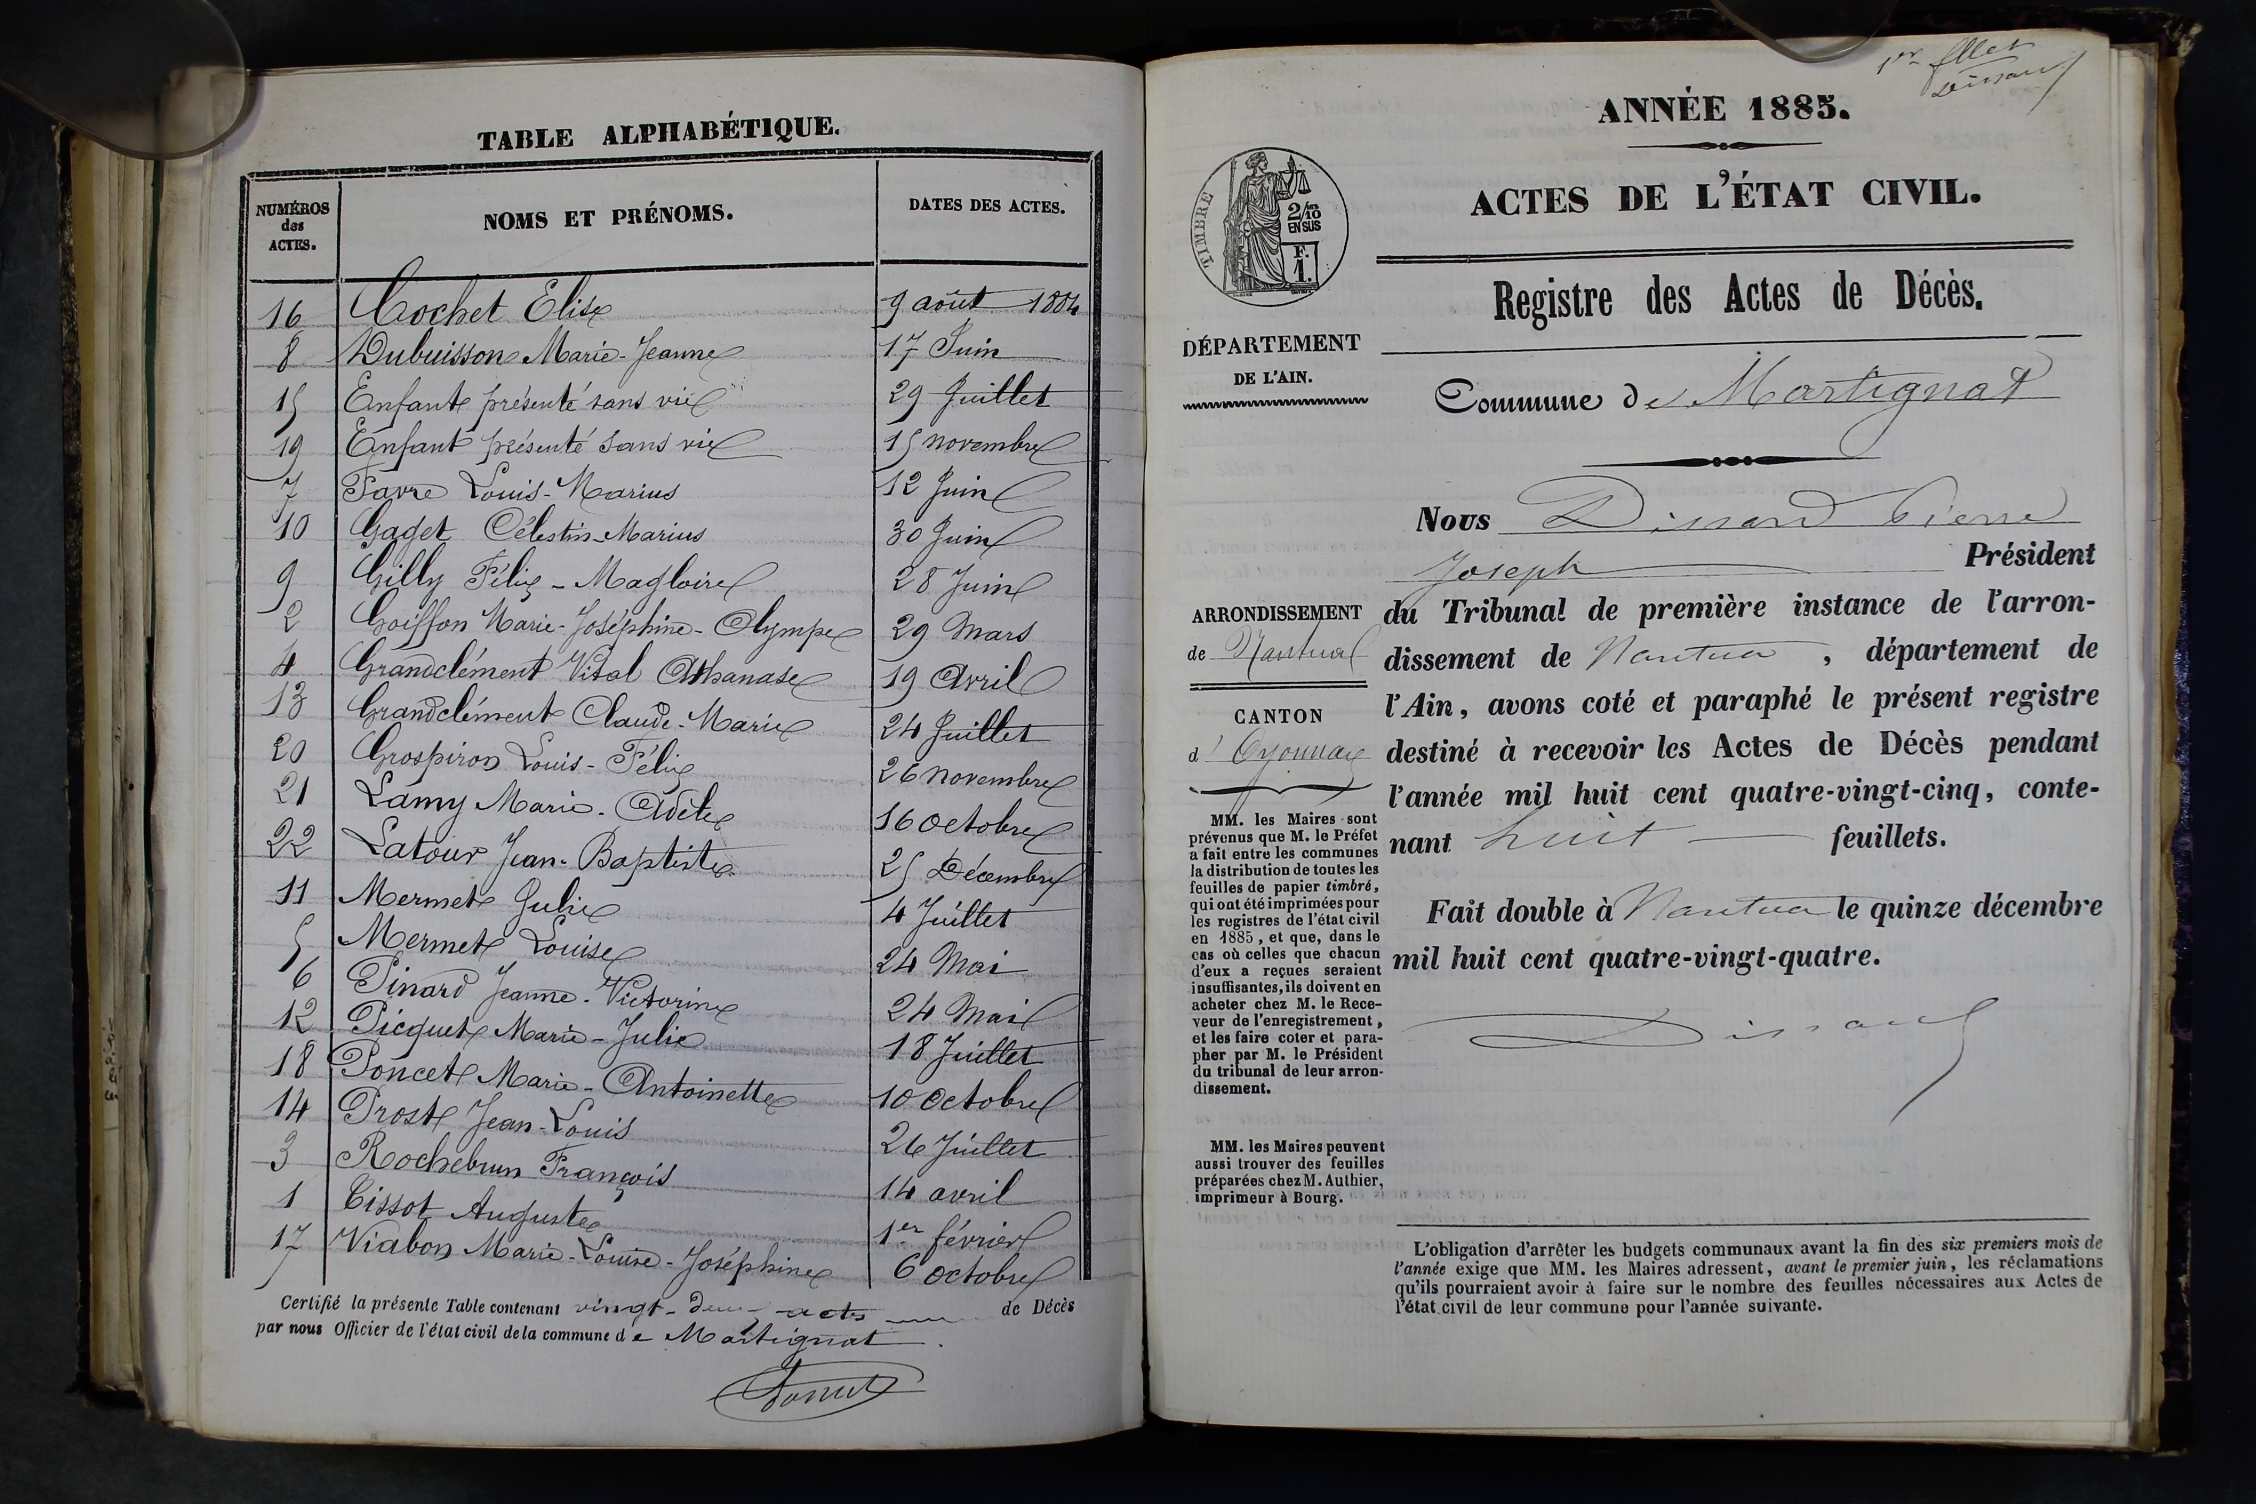 TABLE ALPHABÉTIQUE.
NUMÉROS des ACTES. NOMS ET PRÉNOMS. DATES DES ACTES.
16 Cochet Elise 9 août 1884
8 Dubuisson Marie-Jeanne 17 Juin
15 Enfant présenté sans vie 29 Juillet
19 Enfant présenté sans vie 15 novembre
7 Favre Louis-Marius 12 Juin
10 Gaget Célestin-Marius 30 Juin
9 Gilly Félix-Magloire 28 Juin
2 Goiffon Marie-Joséphine-Olympe 29 Mars
4 Grandclément Vital Athanase 19 Avril
13 Grandclément Claude-Marie 24 Juillet
20 Grospiron Louis-Félix 26 novembre
21 Lamy Marie-Adèle 16 Octobre
22 Latour Jean-Baptiste 25 Décembre
11 Mermet Julie 4 Juillet
5 Mermet Louise 24 Mai
6 Pinard Jeanne-Victorine 24 Mai
12 Picquet Marie-Julie 18 Juillet
18 Poncet Marie-Antoinette 10 Octobre
14 Prost Jean-Louis 26 Juillet
3 Rochebrun François 14 avril
1 Tissot Auguste 1er février
17 Viabon Marie-Louise-Joséphine 6 Octobre
Certifié la présente Table contenant vingt-deux actes de Décès
par nous Officier de l'état civil de la commune de Martignat
1er fllet
Dissard
ANNÉE 1885.
ACTES DE L'ÉTAT CIVIL.
Registre des Actes de Décès.
TIMBRE
2/10 EN SUS
F.
1.
DÉPARTEMENT
DE L'AIN.
Commune de Martignat
Nous Dissard Pierre
Joseph Président
du Tribunal de première instance de l'arron-
dissement de Nantua, département de
l'Ain, avons coté et paraphé le présent registre
destiné à recevoir les Actes de Décès pendant
l'année mil huit cent quatre-vingt-cinq, conte-
nant huit feuillets.
Fait double à Nantua le quinze décembre
mil huit cent quatre-vingt-quatre.
Dissard
ARRONDISSEMENT
de Nantua
CANTON
d'Oyonnax
MM. les Maires sont
prévenus que M. le Préfet
a fait entre les communes
la distribution de toutes les
feuilles de papier timbré,
qui ont été imprimées pour
les registres de l'état civil
en 1885, et que, dans le
cas où celles que chacun
d'eux a reçues seraient
insuffisantes, ils doivent en
acheter chez M. le Rece-
veur de l'enregistrement,
et les faire coter et para-
pher par M. le Président
du tribunal de leur arron-
dissement.
MM. les Maires peuvent
aussi trouver des feuilles
préparées chez M. Authier,
imprimeur à Bourg.
L'obligation d'arrêter les budgets communaux avant la fin des six premiers mois de
l'année exige que MM. les Maires adressent, avant le premier juin, les réclamations
qu'ils pourraient avoir à faire sur le nombre des feuilles nécessaires aux Actes de
l'état civil de leur commune pour l'année suivante.